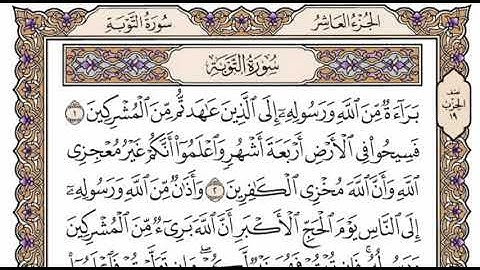 الجُزْءُ العَاشِرُ
سُورَةُ التَّوْبَةِ
سُورَةُ التَّوْبَةِ
نصف
الحزب
١٩
بَرَآءَةٌ مِّنَ ٱللَّهِ وَرَسُولِهِۦٓ إِلَى ٱلَّذِينَ عَٰهَدتُّم مِّنَ ٱلْمُشْرِكِينَ ١
فَسِيحُوا۟ فِى ٱلْأَرْضِ أَرْبَعَةَ أَشْهُرٍ وَٱعْلَمُوٓا۟ أَنَّكُمْ غَيْرُ مُعْجِزِى
ٱللَّهِ وَأَنَّ ٱللَّهَ مُخْزِى ٱلْكَٰفِرِينَ ٢ وَأَذَٰنٌ مِّنَ ٱللَّهِ وَرَسُولِهِۦٓ
إِلَى ٱلنَّاسِ يَوْمَ ٱلْحَجِّ ٱلْأَكْبَرِ أَنَّ ٱللَّهَ بَرِىٓءٌ مِّنَ ٱلْمُشْرِكِينَ